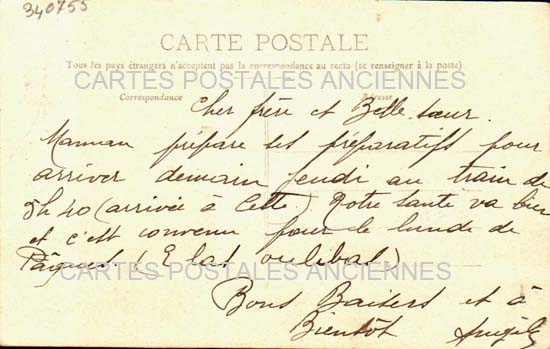 340755
CARTE POSTALE
Tous les pays étrangers n'acceptent pas la correspondance au recto (se renseigner à la poste)
CARTES POSTALES ANCIENNES
Correspondance Adresse
Cher frère et Belle-sœur.
Maman prépare ses préparatifs pour
arriver demain jeudi au train de
5h40 (arrivée à Cette). Notre santé va bien
et c'est convenu pour le lundi de
Pâques
CARTES POSTALES ANCIENNES
Bons Baisers et à
Bientôt